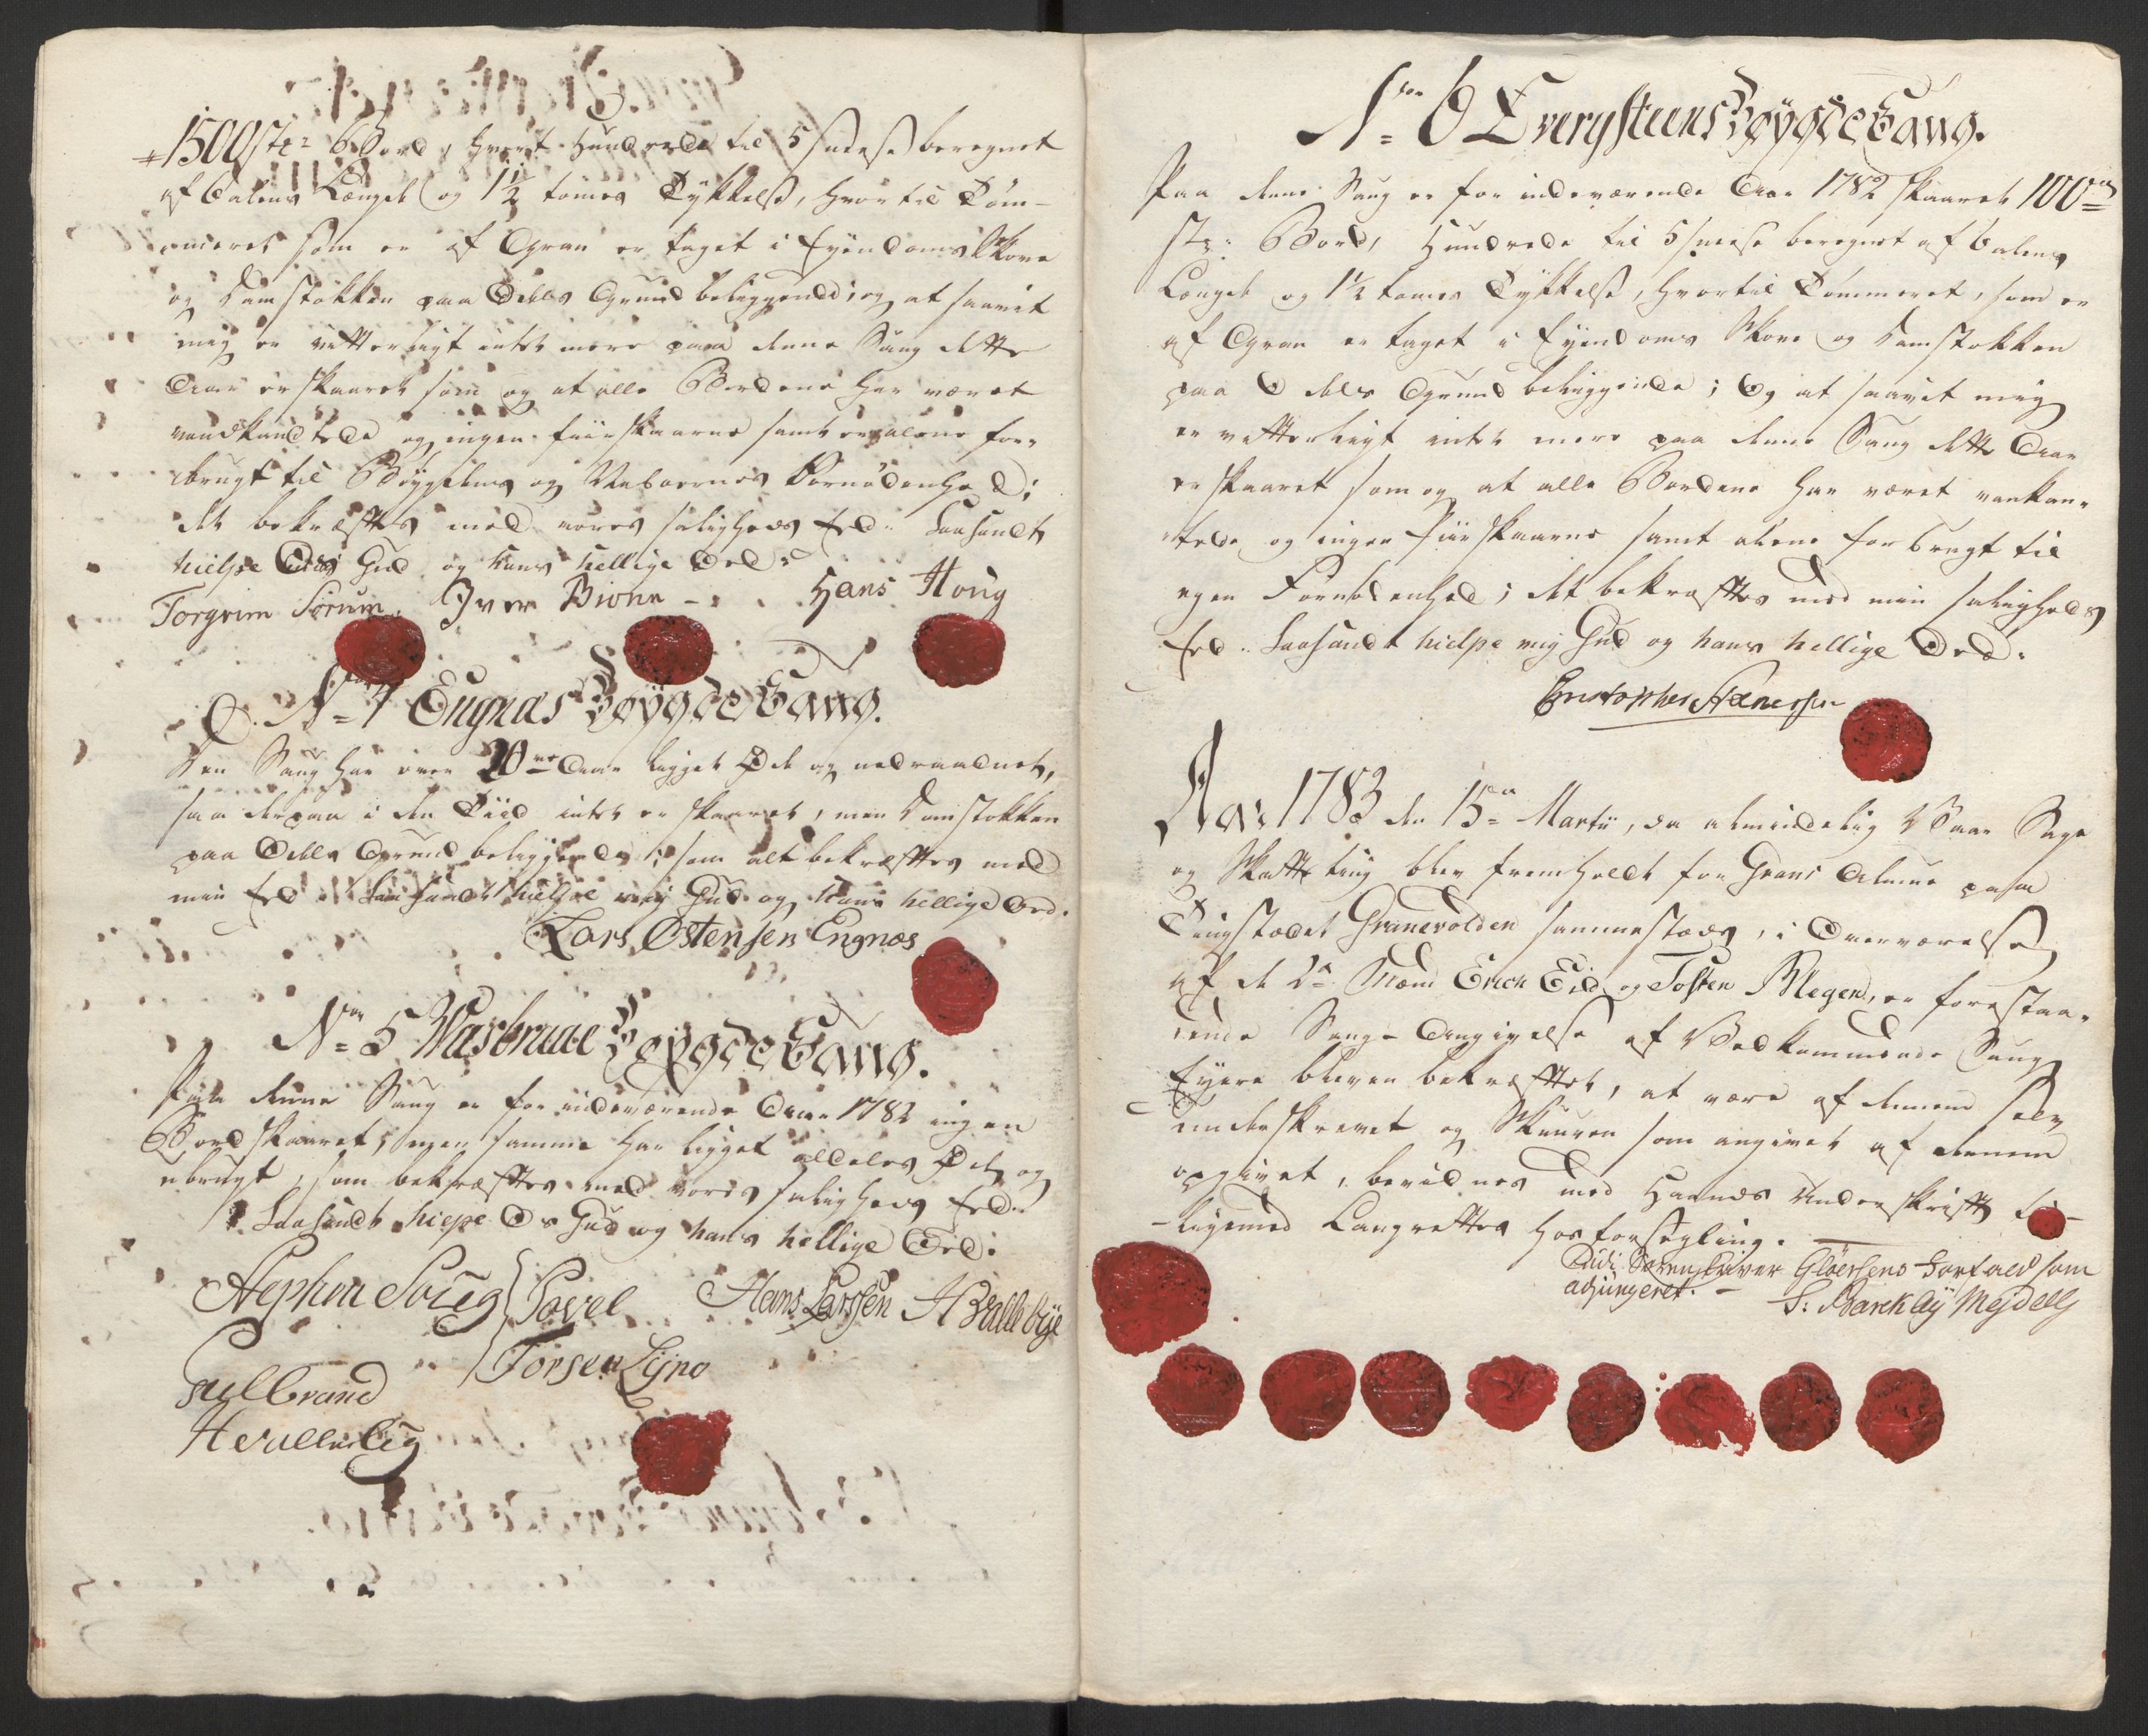 1500 Str: Bord, hvert Hundrede til 5 sneese beregnet
af 6 alens Længde og 1½ tomes Tykkelse, hvortil Töm-
meret som er af Gran er taget i Eyendoms Skove
og Damstokken paa Odels Grund beliggende; og at saavit
mig er vitterligt intet mere paa denne Saug dette
Aar er skaaret som og at alle Bordene har været
vandkandtede og ingen fiirskaarne samt alene for-
brugt til Böygdens og Naboernes Fornödenhed;
det bekræftes med vores saligheds Eed. Saasandt
hielpe Os Gud og hans hellige Ord.
Torgrim Sörum. Iver Bionn - Hans Houg
No 4 Engnæs Böygde Saug.
Den Saug har over 20ve Aar ligget Öde og nedraadnet,
saa derpaa i den Tiid intet er skaaret, men Damstokken
paa Odels Grund beliggende; som alt bekræftes med
min Eed. Saasandt hielpe mig Gud og hans hellige Ord.
Lars Östensen Engnæs
No 5 Wasbrune Böygde Saug.
Paa denne Saug er for indeværende Aar 1782 ingen
Bord skaaret, men samme har ligget aldeles Öde og
ubrugt, som bekræftes med vores saligheds Eed.
Saasandt hielpe Os Gud og hans hellige Ord.
Povel Hans Larssen
Torsen
Gulbrand
No 6 Dvergsteens Böygde Saug.
Paa denne Saug er for indeværende Aar 1782 skaaret 100de
Str: Bord, Hundrede til 5 sneese beregnet af 6 alens
Længde og 1½ tomes Tykkelse, hvortil Tömmeret, som er
af Gran er taget i Eyendoms Skove og Damstokken
paa Odels Grund beliggende; Og at saavit mig
er vitterligt intet mere paa denne Saug dette Aar
er skaaret som og at alle Bordene har været vankan-
tede og ingen fiirskaarne samt alene forbrugt til
egen Fornödenhed; det bekræftes med min saligheds
Eed. Saasandt hielpe mig Gud og hans hellige Ord.
Christopher
Aar 1783 den 15de Martii, da almindelig Vaar Sage
og Skatte ting blev fremholdt for Grans Almue paa
Tingstædet Granevolden sammestæds, i Overværelse
af de 2de Mænd Erich Eid og Tosten Blegen, er forestaa-
ende Saug-Angivelse af Vedkommende Saug
Eyere bleven bekræftet, at være af dennem selv
underskrevet og Skuuren som angivet af dennem
opgivet, bevidnes med Haands Underskrift
ligemed Laugrettes hosforsegling.
Udi Sorenskriver Gløersens Forfald som
adjungeret. -
S: Barckly Mejdell